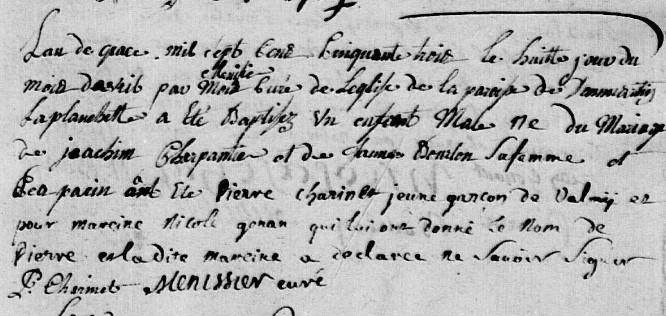 Lan de grace mil sept Cens Cinquante trois le huitte jour du
mois davril par Moi Menissier Curé de Leglise de la paroise de Dammartin
Laplanchette a Eté Baptisez Un enfant Male ne du Mariage
de joachim Charpantier et de jeanne Denilon Safemme et
Pour parin ont Eté Pierre charinet jeune garçon de Valmij et
pour mareine nicole gonan qui lui ont donné le nom de
Pierre et la dite mareine a declarée ne Savoir Signer
P. Charinet Menissier curé